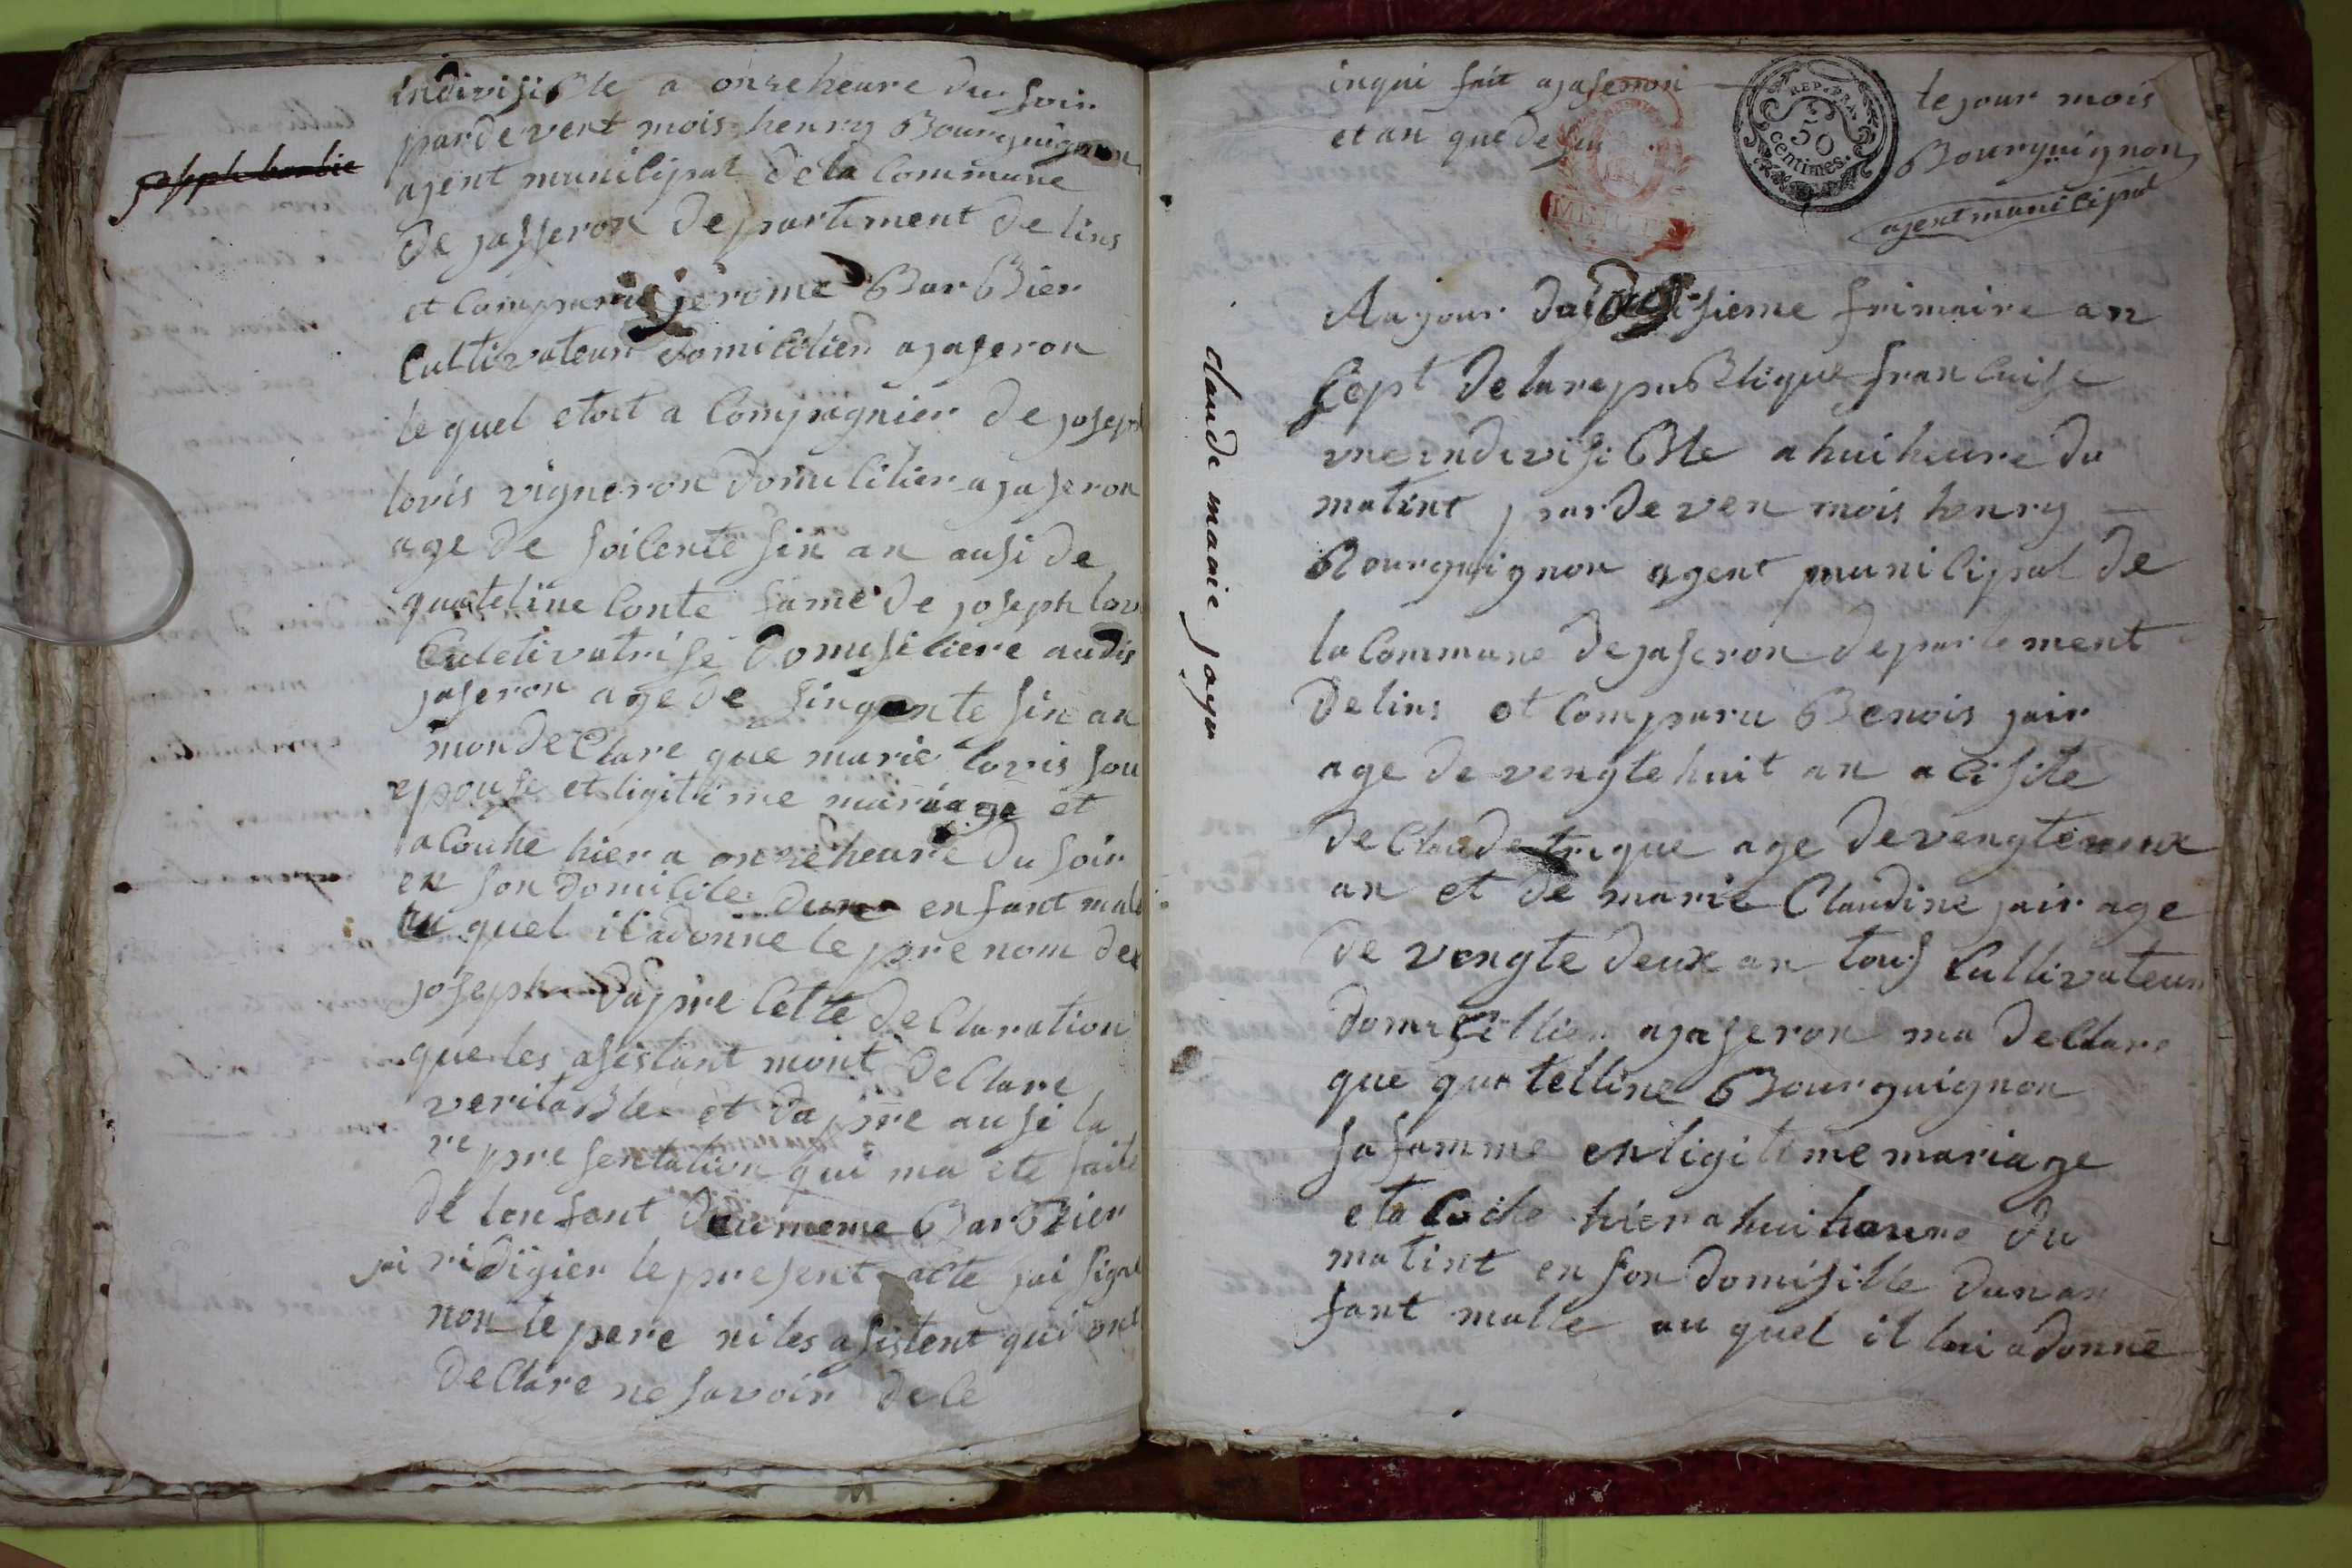 joseph barbie
indivisible a onze heure du soir
pardevent mois henry Bourguignon
agent municipal de la Commune
de jasseron departement de lins
et Comparu jerome BarBier
Cultivateur domicilier ajaseron
le quel etoit a Compagnier de joseph
lovis vigneron domicilier ajaseron
age de soicente six an ausi de
quateline Conte fame de joseph lov
Culetivatrise Domisiliere audis
jaseron age de singente six an
mon de Clare que marie lovis sou
epouse et ligitime mariage et
acouhe hier a onze heure du soir
en son domicile dun enfant male
au quel il adonne le prenom de
joseph dapre Cette de Claration
que les asistant mont de Clare
veritaBle et dapre ausi la
representation qui ma ete faite
de lenfant deu meme BarBier
jai ridigier le present acte jai signe
non le pere ni les asistent qui ont
de Clare ne savoir de le
inqui fait ajaseron le jour mois
et an que desu Bourguignon
agent municipal
REP. FRA.
50
Centimes.
claude marie jayr
Au jour dui sieme frimaire an
sept de la repuBlique francaise
une indevisiBle a hui heure du
matint par de ven mois henry
Bourguignon agent municipal de
la Commune de jaseron departement
de lins et Comparu Benois jair
age de vengte huit an a Cisite
de Claude trique age de vengte
an et de marie Claudine jair age
de vengte deux an tous Cultivateur
domicillier ajaseron ma de Clare
que quatelline Bourguignon
sa famme en ligitime mariage
eta Coche hier a hui haure du
matint en son domisille dun an
fant malle au quel il lui a donne